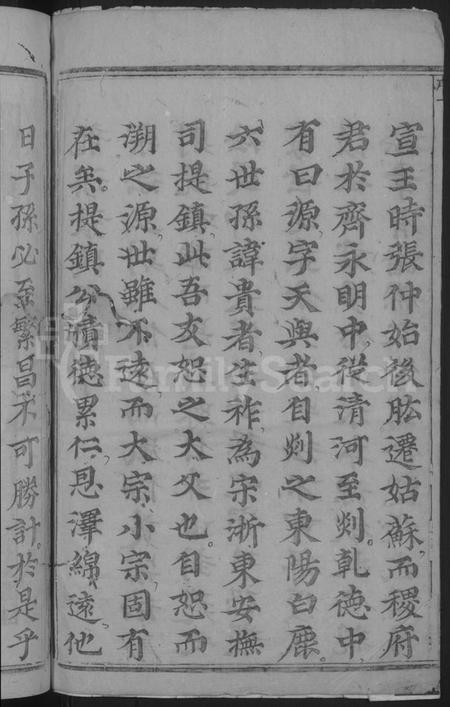 宣王時張仲始後肱遷姑蘇而稷府
君於齊永明中從清河至剡乾德中
有曰源字天與者自剡之東陽白鹿
六世孫諱貴者生祚為宋浙東安撫
司提鎮此吾友恕之大父也自恕而
溯之源世雖不遠而大宗小宗固有
在矣提鎮公積德累仁恩澤綿遠他
日子孫必至繁昌不可勝計於是乎
FamilySearch